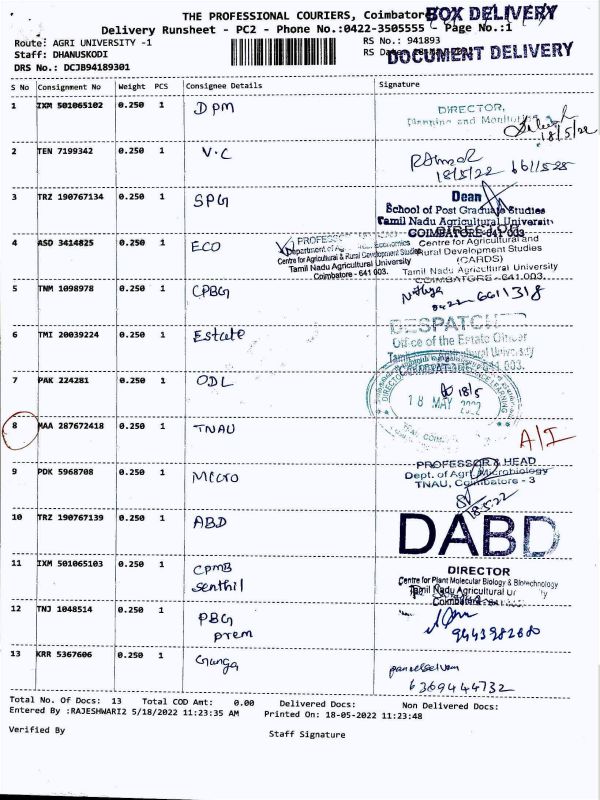 THE PROFESSIONAL COURIERS, Coimbatore
BOX DELIVERY
Delivery Runsheet - PC2 - Phone No.:0422-3505555 Page No.:1
Route: AGRI UNIVERSITY -1
RS No.: 941893
Staff: DHANUSKODI
DOCUMENT DELIVERY
DRS No.: DCJB94189301
S No Consignment No Weight PCS Consignee Details Signature
1 IXM 501065102 0.250 1 DPM
DIRECTOR,
Planning and Monitoring
18/5/22
2 TEN 7199342 0.250 1 V.C
18/5/22 6611525
3 TRZ 190767134 0.250 1 SPG
Dean
School of Post Graduate Studies
Tamil Nadu Agricultural University
COIMBATORE-641 003
4 ASD 3414825 0.250 1 ECO
Centre for Agricultural & Rural Development Studies
Tamil Nadu Agricultural University
Coimbatore - 641 003.
DIRECTOR
Centre for Agricultural and
Rural Development Studies
(CARDS)
Tamil Nadu Agricultural University
COIMBATORE - 641 003.
5 TNM 1098978 0.250 1 CPBG
Nithya
0422-6611318
6 TMI 20039224 0.250 1 Estate
DESPATCH
Office of the Estate Officer
Tamil Nadu Agricultural University
COIMBATORE-641 003.
7 PAK 224281 0.250 1 ODL
18/5
18 MAY 2022
8 MAA 287672418 0.250 1 TNAU
A/I
9 PDK 5968708 0.250 1 Micro
PROFESSOR & HEAD
Dept. of Agrl. Microbiology
TNAU, Coimbatore - 3
18.5.22
10 TRZ 190767139 0.250 1 ABD
DABD
11 IXM 501065103 0.250 1 CPMB
senthil
DIRECTOR
Centre for Plant Molecular Biology & Biotechnology
Tamil Nadu Agricultural
Coimbatore
12 TNJ 1048514 0.250 1 PBG
prem
9443982680
13 KRR 5367606 0.250 1 Ganga
panneelselvam
6369444732
Total No. Of Docs: 13 Total COD Amt: 0.00 Delivered Docs: Non Delivered Docs:
Entered By :RAJESHWARI2 5/18/2022 11:23:35 AM Printed On: 18-05-2022 11:23:48
Verified By
Staff Signature